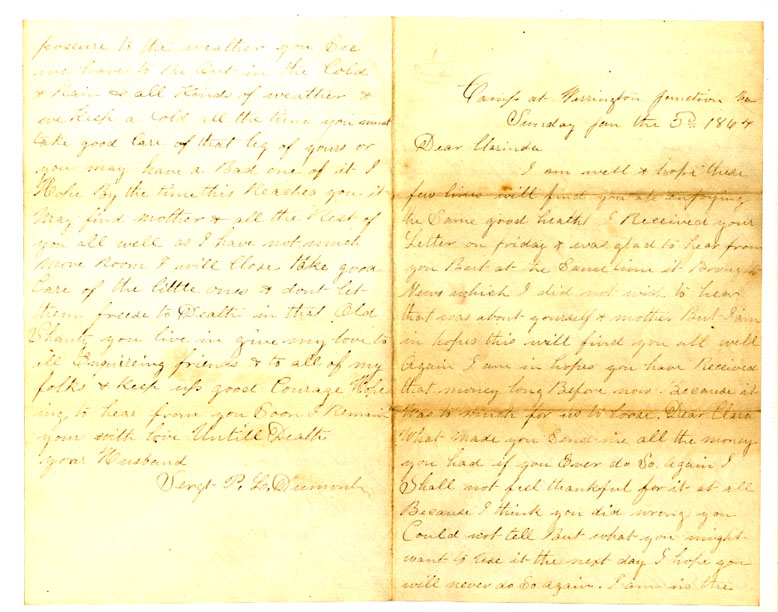 Camp at Warrington Junction Va
Sunday Jan the 3d, 1864
Dear Clarinda
I am well & hope these
few lines will find you all enjoying
the Same good health I Received your
Letter on friday & was glad to hear from
you But at the Same time it Brought
News which I did not wish to hear
that was about yourself & mother But I am
in hopes this will find you all well
Again I am in hopes you have Received
that money long Before now. Because it
Was to much for us to loose. Dear Clara
What made you Send me all the money
you had if you Ever do So again I
Shall not feel thankful for it at all
Because I think you did wrong you
Could not tell But what you might
want to use it the next day I hope you
will never do So again. I am in the
posure to the weather you See
we have to Be Out in the Cold
& Rain & all Kinds of weather &
we Keep a Cold all the time you must
take good Care of that leg of yours or
you may have a Bad one of it I
Hope By the time this Reaches you it
May find mother & all the Rest of
you all well as I have not much
more Room I will Close take good
Care of the little ones & dont let
them freeze to Death in that Old
Shanty you live in give my love to
all Enquireing friends & to all of my
folks & Keep up good Courage Hope
ing to hear from you Soon I Remain
your with love Untill Death
your Husband
Sergt P. L. Dumont